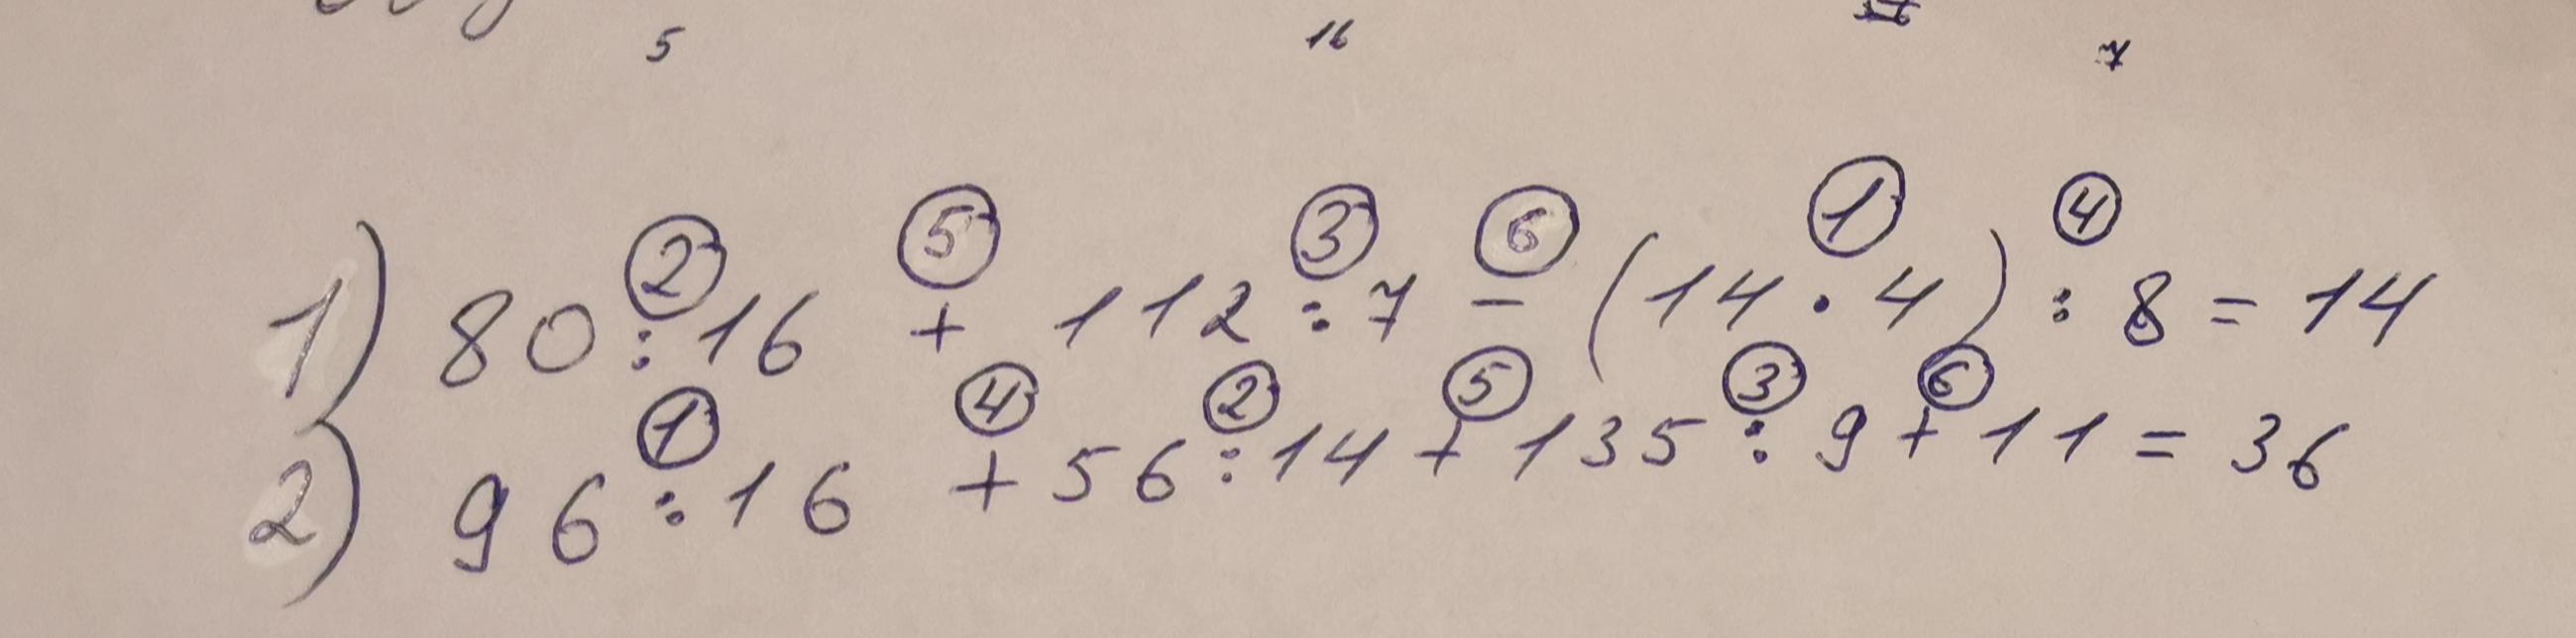 5 16 56 7
② ⑤ ③ ⑥ ① ④
1) 80 : 16 + 112 : 7 - (14 · 4) : 8 = 14
① ④ ② ⑤ ③ ⑥
2) 96 : 16 + 56 : 14 + 135 : 9 + 11 = 36